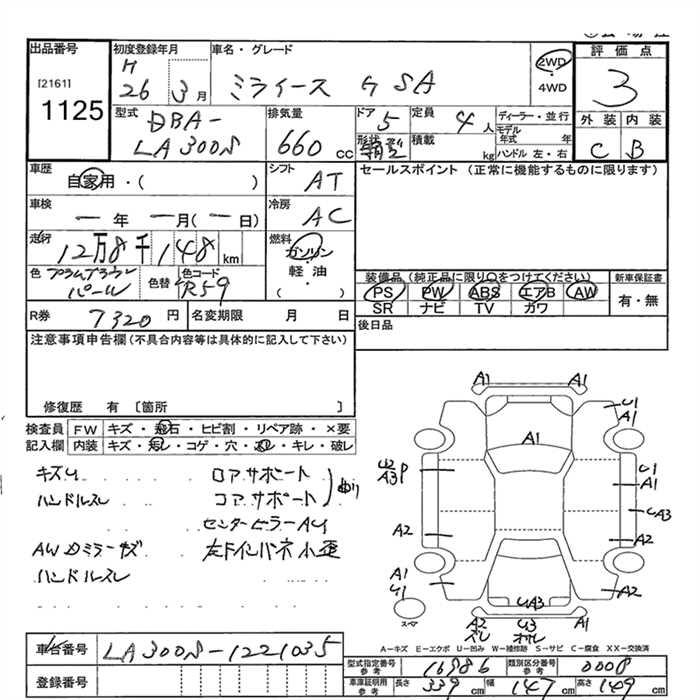 出品番号
[2161]
1125
初度登録年月
H
26 3月
車名・グレード
ミライース G SA
2WD
4WD
評価点
3
外装 内装
C B
型式
DBA-
LA300S
排気量
660 cc
ドア
5
定員
4人
ディーラー・並行
モデル
年式 年
形状
積載
kg
ハンドル 左・右
車歴
自家用・( )
シフト
AT
セールスポイント (正常に機能するものに限ります)
車検
ー年ー月(ー日)
冷房
AC
走行
12万8千148km
燃料
ガソリン
軽・油
( )
色
プラムブラウン
パール
色替
色コード
R59
装備品(純正品に限り○をつけてください)
PS PW ABS エアB AW
SR ナビ TV カワ
新車保証書
有・無
R券
7320円
名変期限 月 日
後日品
注意事項申告欄(不具合内容等は具体的に記入して下さい)
修復歴 有 〔箇所 〕
検査員
記入欄
FW キズ・飛石・ヒビ割・リペア跡・×要
内装 キズ・汚レ・コゲ・穴・スレ・キレ・破レ
キズU
ハンドルスレ
ロアサポート
コアサポート
曲り
センターピラーAU
AWDミラーキズ
左ドインパネ小歪
ハンドルスレ
A1 A1
A1
U1
A1
U2
A3 P
U1
A1
UA3
A2 A2
A1
U1
UA2
UA3
スペア
A1 A1
A2
スレ
U3
オレ
A-キズ E-エクボ U-凹み W-補修跡 S-サビ C-腐食 XX-交換済
車台番号
LA300S-1221035
登録番号
型式指定
参考
16986
類別区分番号
参考
0008
車庫証明用
参考
長さ 339cm
幅 147cm
高さ 149cm